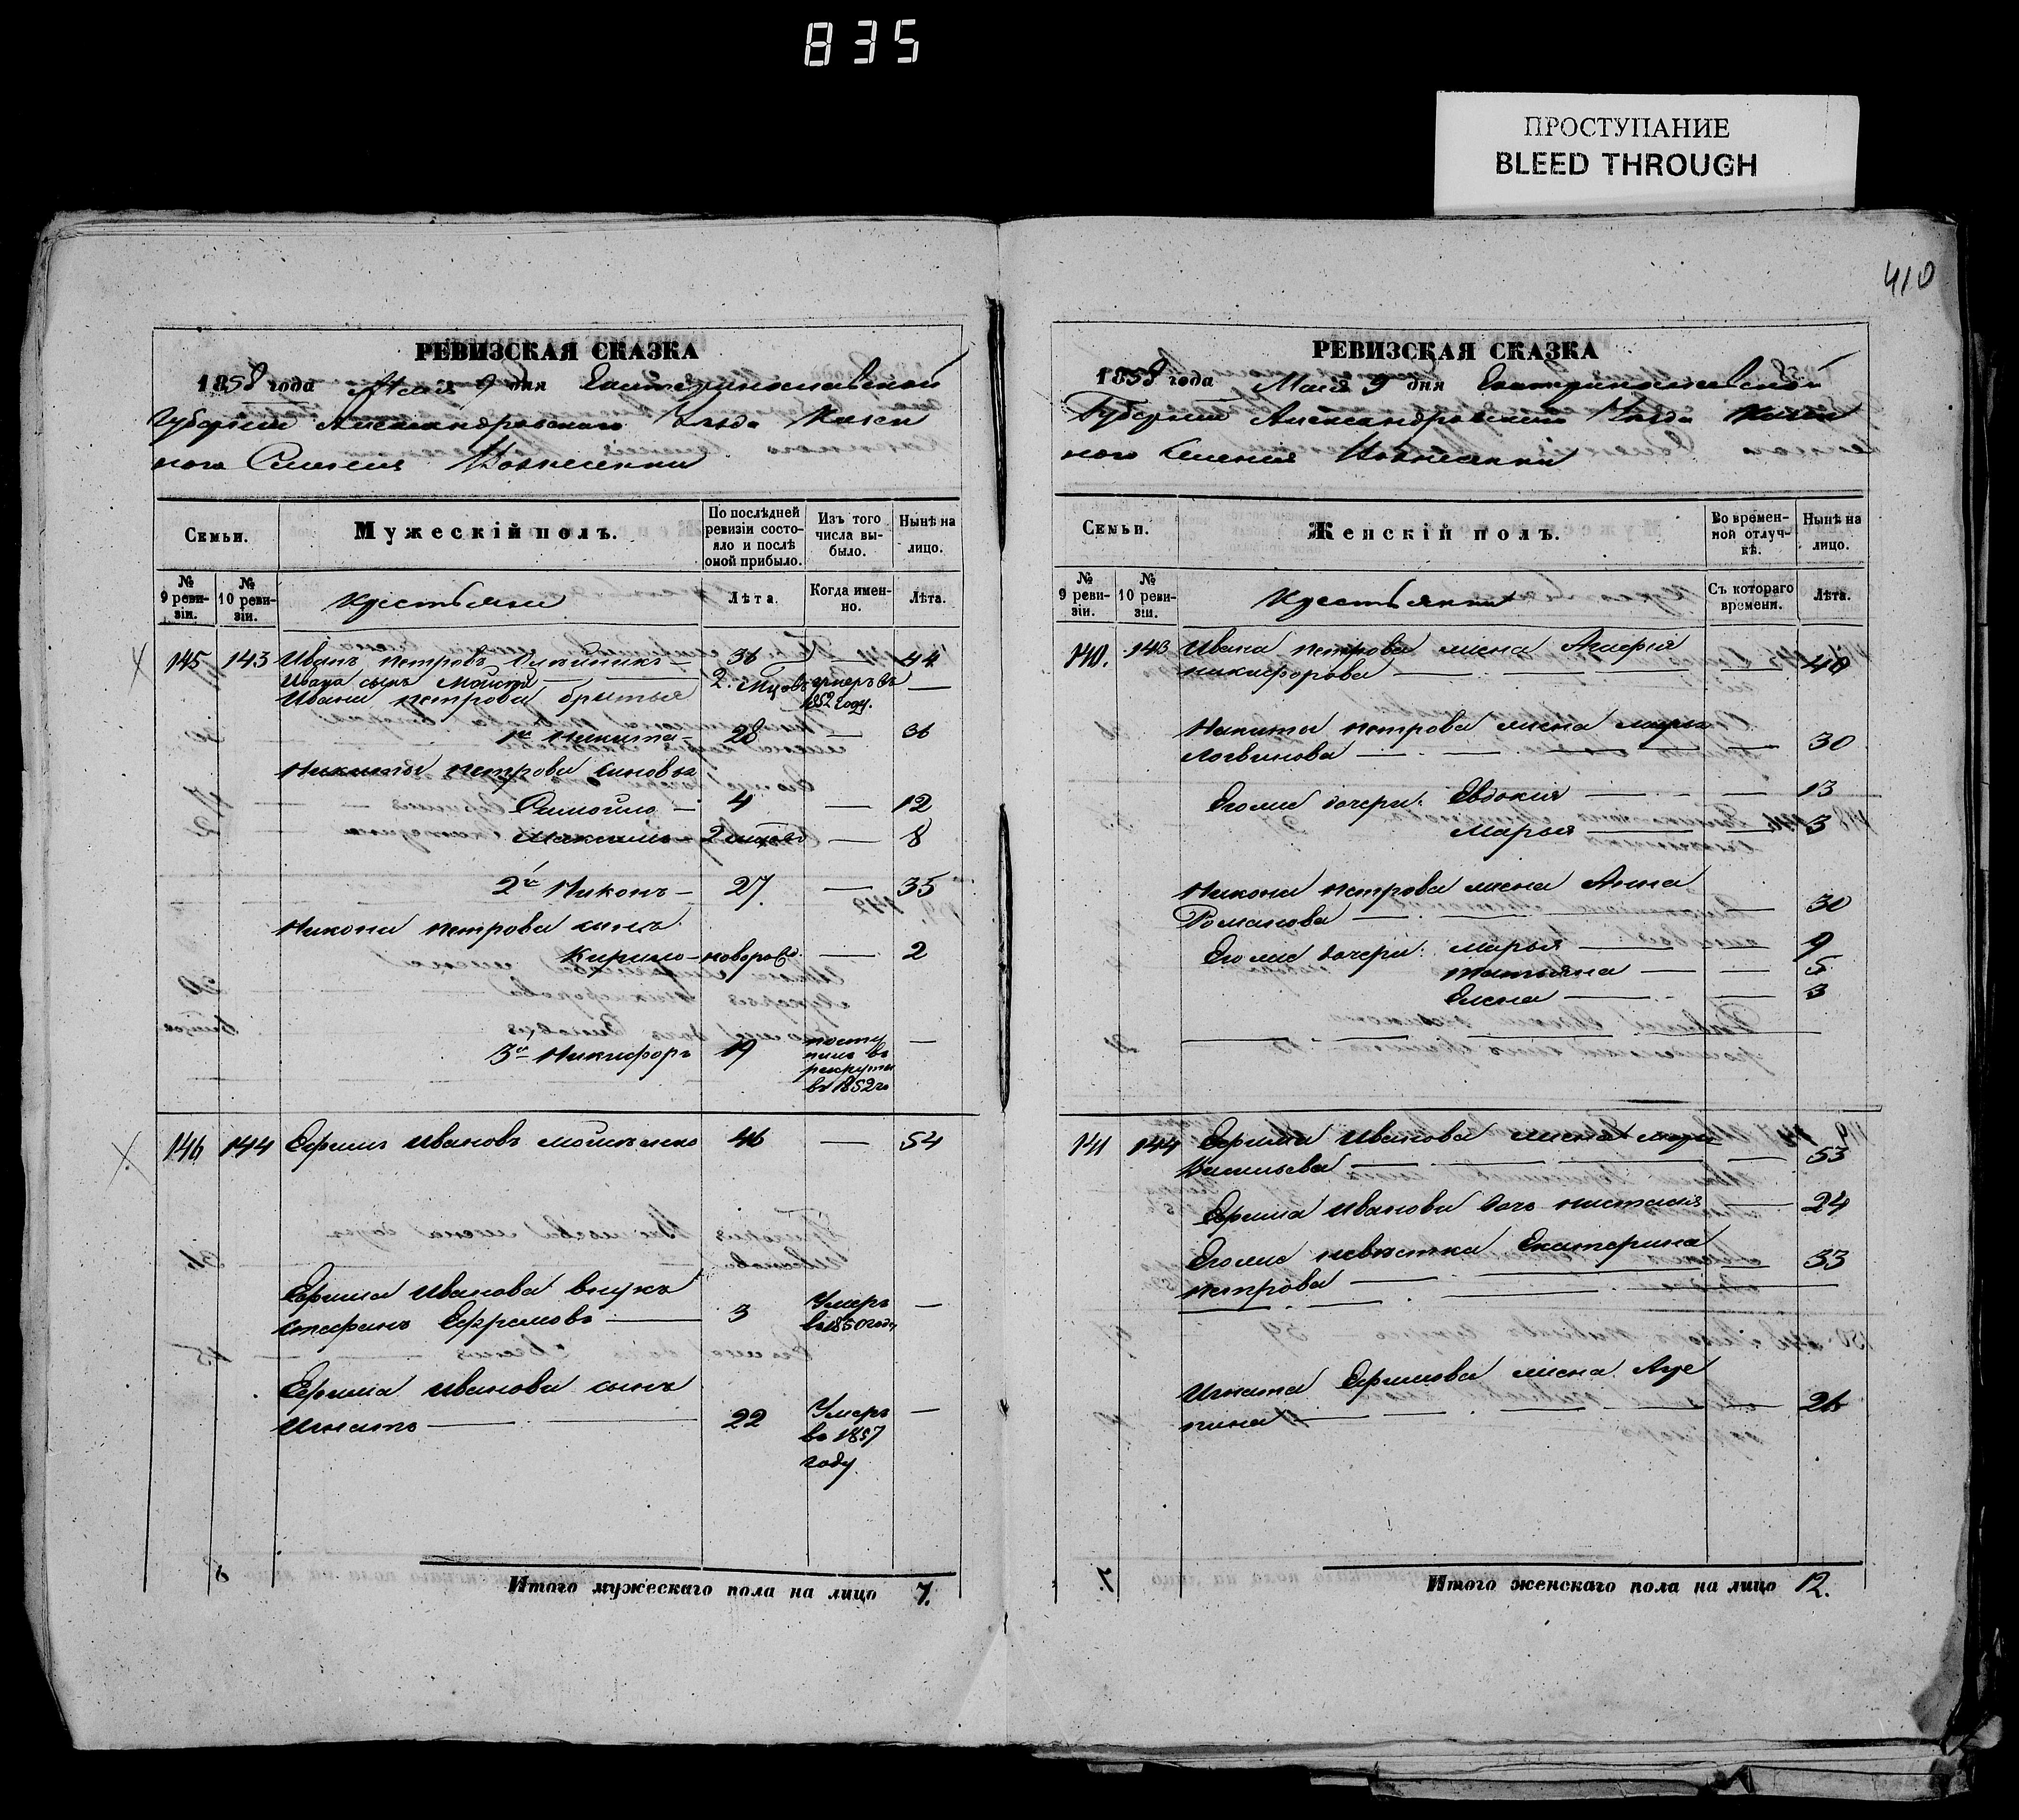 835
ПРОСТУПАНИЕ
BLEED THROUGH
410
РЕВИЗСКАЯ СКАЗКА
1858 года Мая 9 дня Екатеринославской
Губерніи Александровскаго Уѣзда Казен
наго Селенія Вознесенки
Семьи.
Мужескій полъ.
По послѣдней ревизіи состояло и послѣ оной прибыло.
Изъ того числа выбыло.
Нынѣ на лицо.
№ 9 ревизіи.
№ 10 ревизіи.
Крестьяне
Лѣта.
Когда именно.
Лѣта.
145 143 Иванъ Петровъ 36 — 44
Ивана сынъ Мойсей 2 умеръ въ 1852 году. —
Ивана Петрова братья
1й Никита — 28 — 36
Никиты Петрова сыновья
Самойло — 4 — 12
Максимъ — 2 — 8
2й Никонъ — 27. — 35
Никона Петрова сынъ
Кирило — новорожд. — 2
3й Никифоръ 19 поступилъ въ рекруты въ 1852 го —
146 144 Ефимъ Ивановъ 46 — 54
Ефима Иванова внукъ
Стефанъ Ефремовъ — 3 Умеръ въ 1850 году —
Ефима Иванова сынъ
Игнатъ — 22 Умеръ въ 1857 году —
Итого мужескаго пола на лицо 7.
РЕВИЗСКАЯ СКАЗКА
1858 года Мая 9 дня Екатеринославской
Губерніи Александровскаго Уѣзда Казен
наго Селенія Вознесенки
Семьи.
Женскій полъ.
Во временной отлучкѣ.
Нынѣ на лицо.
№ 9 ревизіи.
№ 10 ревизіи.
Крестьянки
Съ котораго времени.
Лѣта.
140. 143 Ивана Петрова жена Агафія
Никифорова — — 40
Никиты Петрова жена Марья
Логвинова — — 30
Его же дочери: Евдокия — — 13
Марья — — 3
Никона Петрова жена Анна
Романова — — 30
Его же дочери: Марья — — 9
Татьяна — — 5
Елена — — 3
141 144 Ефима Иванова жена
Васильева — — 53
Ефима Иванова дочь Настасія — 24
Его же невѣстка Екатерина
Петрова — — 33
Игната Ефимова жена Агре
пина — — 26
Итого женскаго пола на лицо 12.